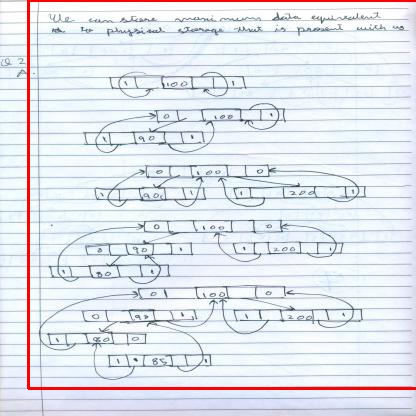 We can store maximum data equivalent
to physical storage that is present with us
Q 2
A.
1 100 1
0 100 1
1 90 1
0 100 0
1 90 1 1 200 1
0 100 0
0 90 1 1 200 1
1 80 1
0 100 0
0 90 1 1 200 1
1 80 0
1 85 1